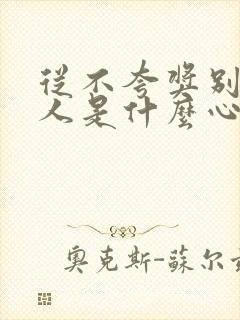 從不夸獎別
人是什麼心
奧克斯-蘇尔